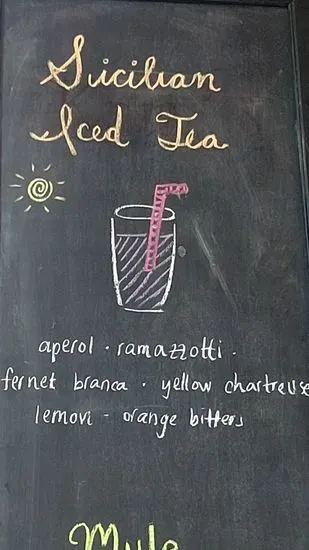 Sicilian
Iced Tea
aperol · ramazzotti ·
fernet branca · yellow chartreuse
lemon - orange bitters
Mule